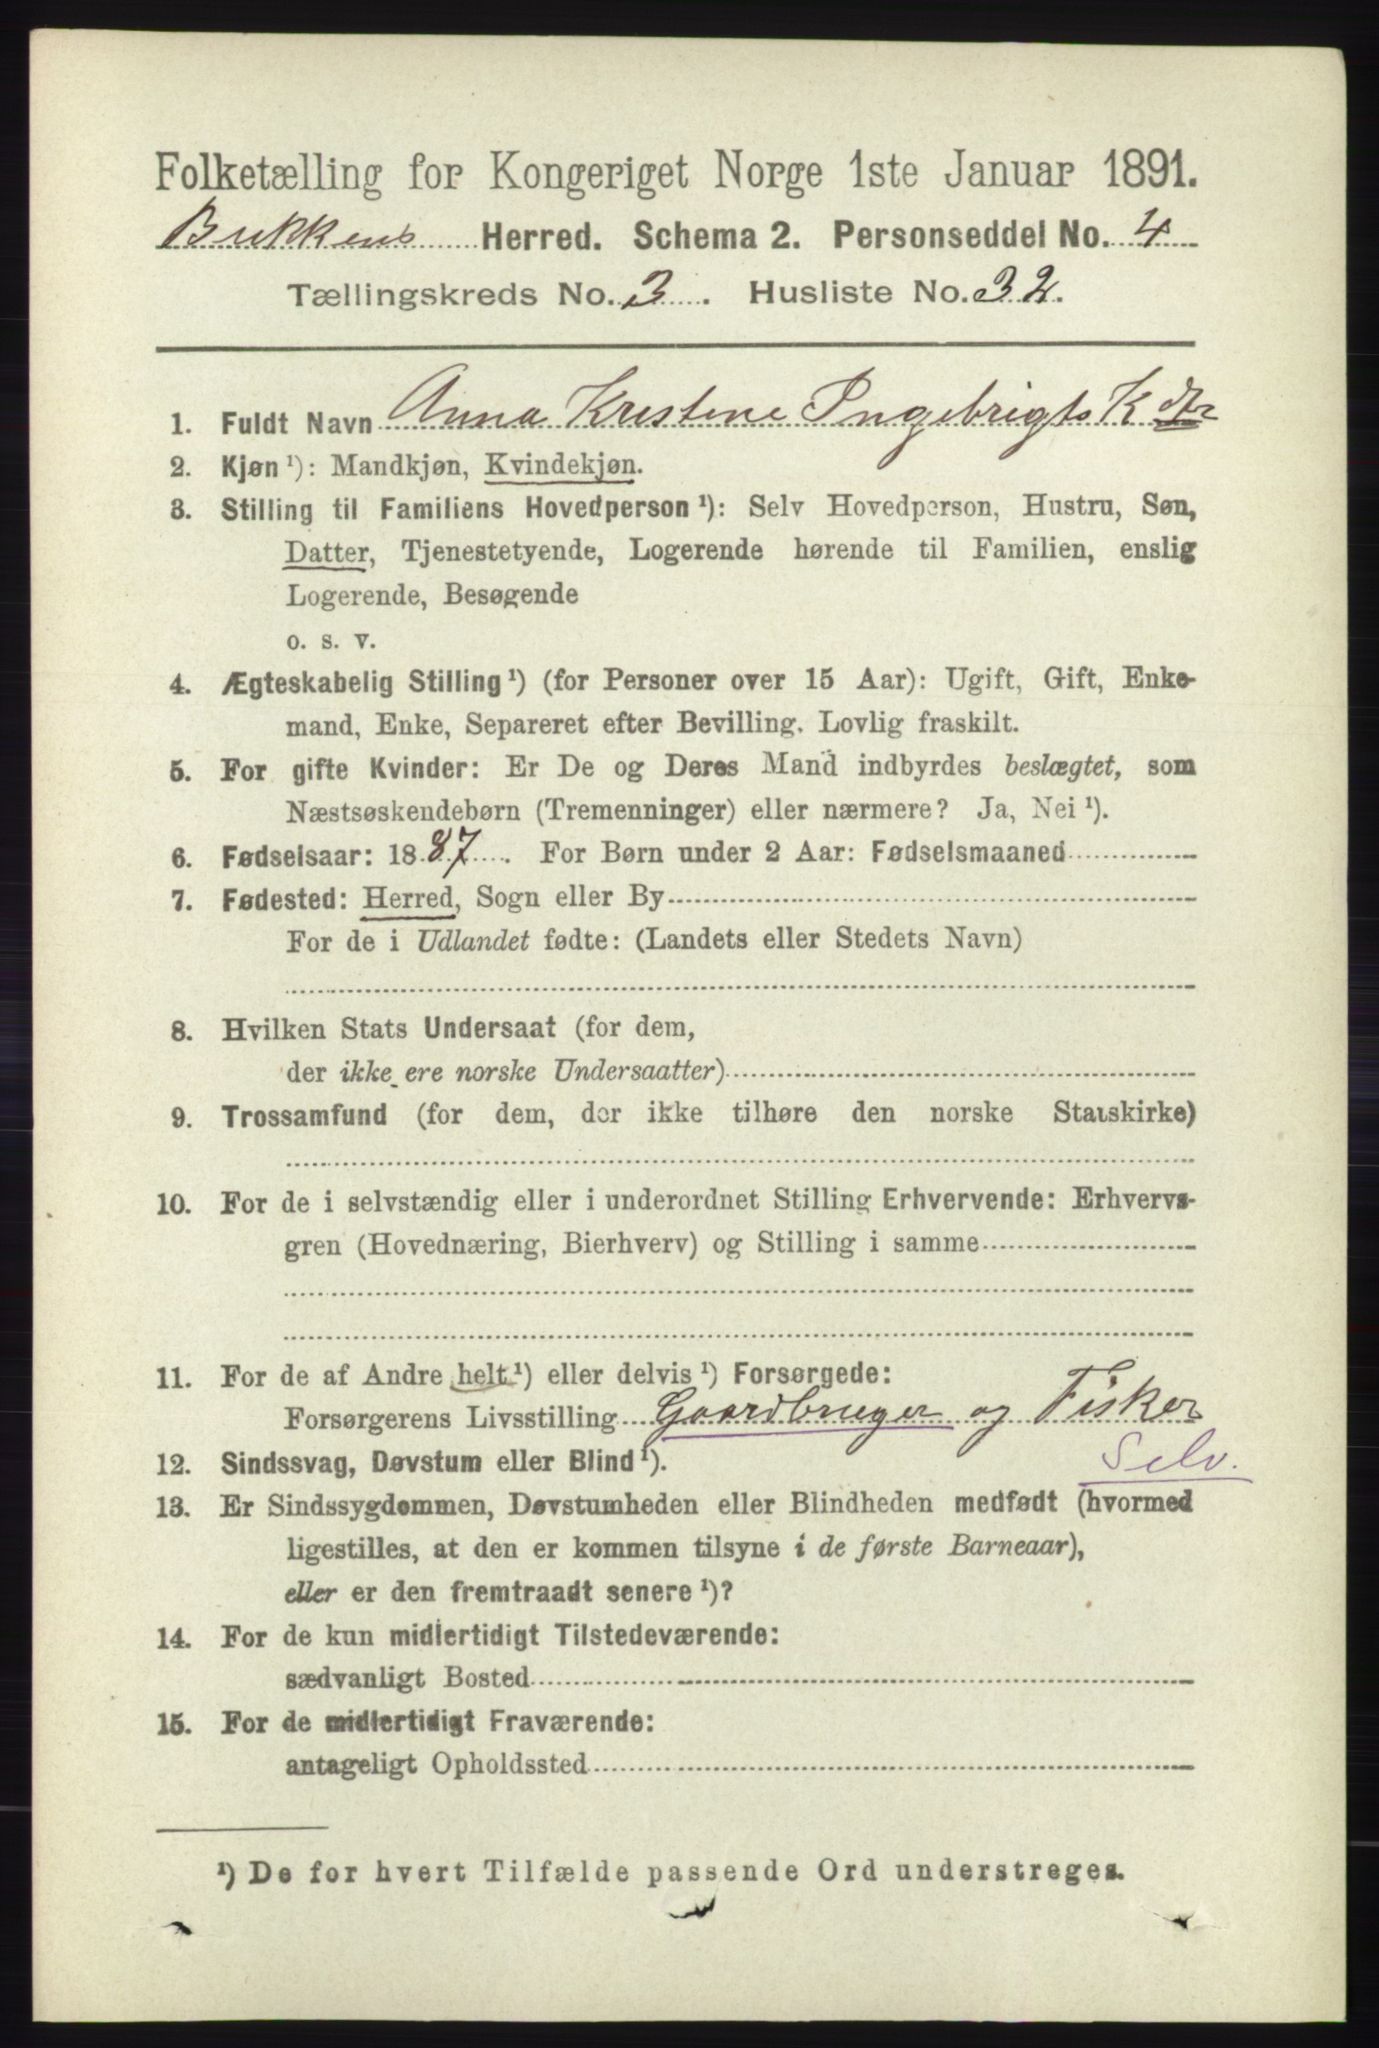 Folketælling for Kongeriget Norge 1ste Januar 1891.
Bukkens Herred. Schema 2. Personseddel No. 4
Tællingskreds No. 3. Husliste No. 32.
1. Fuldt Navn Anna Kristine Ingebrigts K dtr
2. Kjøn ¹): Mandkjøn, Kvindekjøn.
3. Stilling til Familiens Hovedperson ¹): Selv Hovedperson, Hustru, Søn,
Datter, Tjenestetyende, Logerende hørende til Familien, enslig
Logerende, Besøgende
o. s. v.
4. Ægteskabelig Stilling ¹) (for Personer over 15 Aar): Ugift, Gift, Enke-
mand, Enke, Separeret efter Bevilling. Lovlig fraskilt.
5. For gifte Kvinder: Er De og Deres Mand indbyrdes beslægtet, som
Næstsøskendebørn (Tremenninger) eller nærmere? Ja, Nei ¹).
6. Fødselsaar: 1887. For Børn under 2 Aar: Fødselsmaaned
7. Fødested: Herred, Sogn eller By
For de i Udlandet fødte: (Landets eller Stedets Navn)
8. Hvilken Stats Undersaat (for dem,
der ikke ere norske Undersaatter)
9. Trossamfund (for dem, der ikke tilhøre den norske Statskirke)
10. For de i selvstændig eller i underordnet Stilling Erhvervende: Erhvervs-
gren (Hovednæring, Bierhverv) og Stilling i samme
11. For de af Andre helt ¹) eller delvis ¹) Forsørgede:
Forsørgerens Livsstilling Gaardbruger og Fisker
Selv.
12. Sindssvag, Døvstum eller Blind ¹).
13. Er Sindssygdommen, Døvstumheden eller Blindheden medfødt (hvormed
ligestilles, at den er kommen tilsyne i de første Barneaar),
eller er den fremtraadt senere ¹)?
14. For de kun midlertidigt Tilstedeværende:
sædvanligt Bosted
15. For de midlertidigt Fraværende:
antageligt Opholdssted
¹) De for hvert Tilfælde passende Ord understreges.